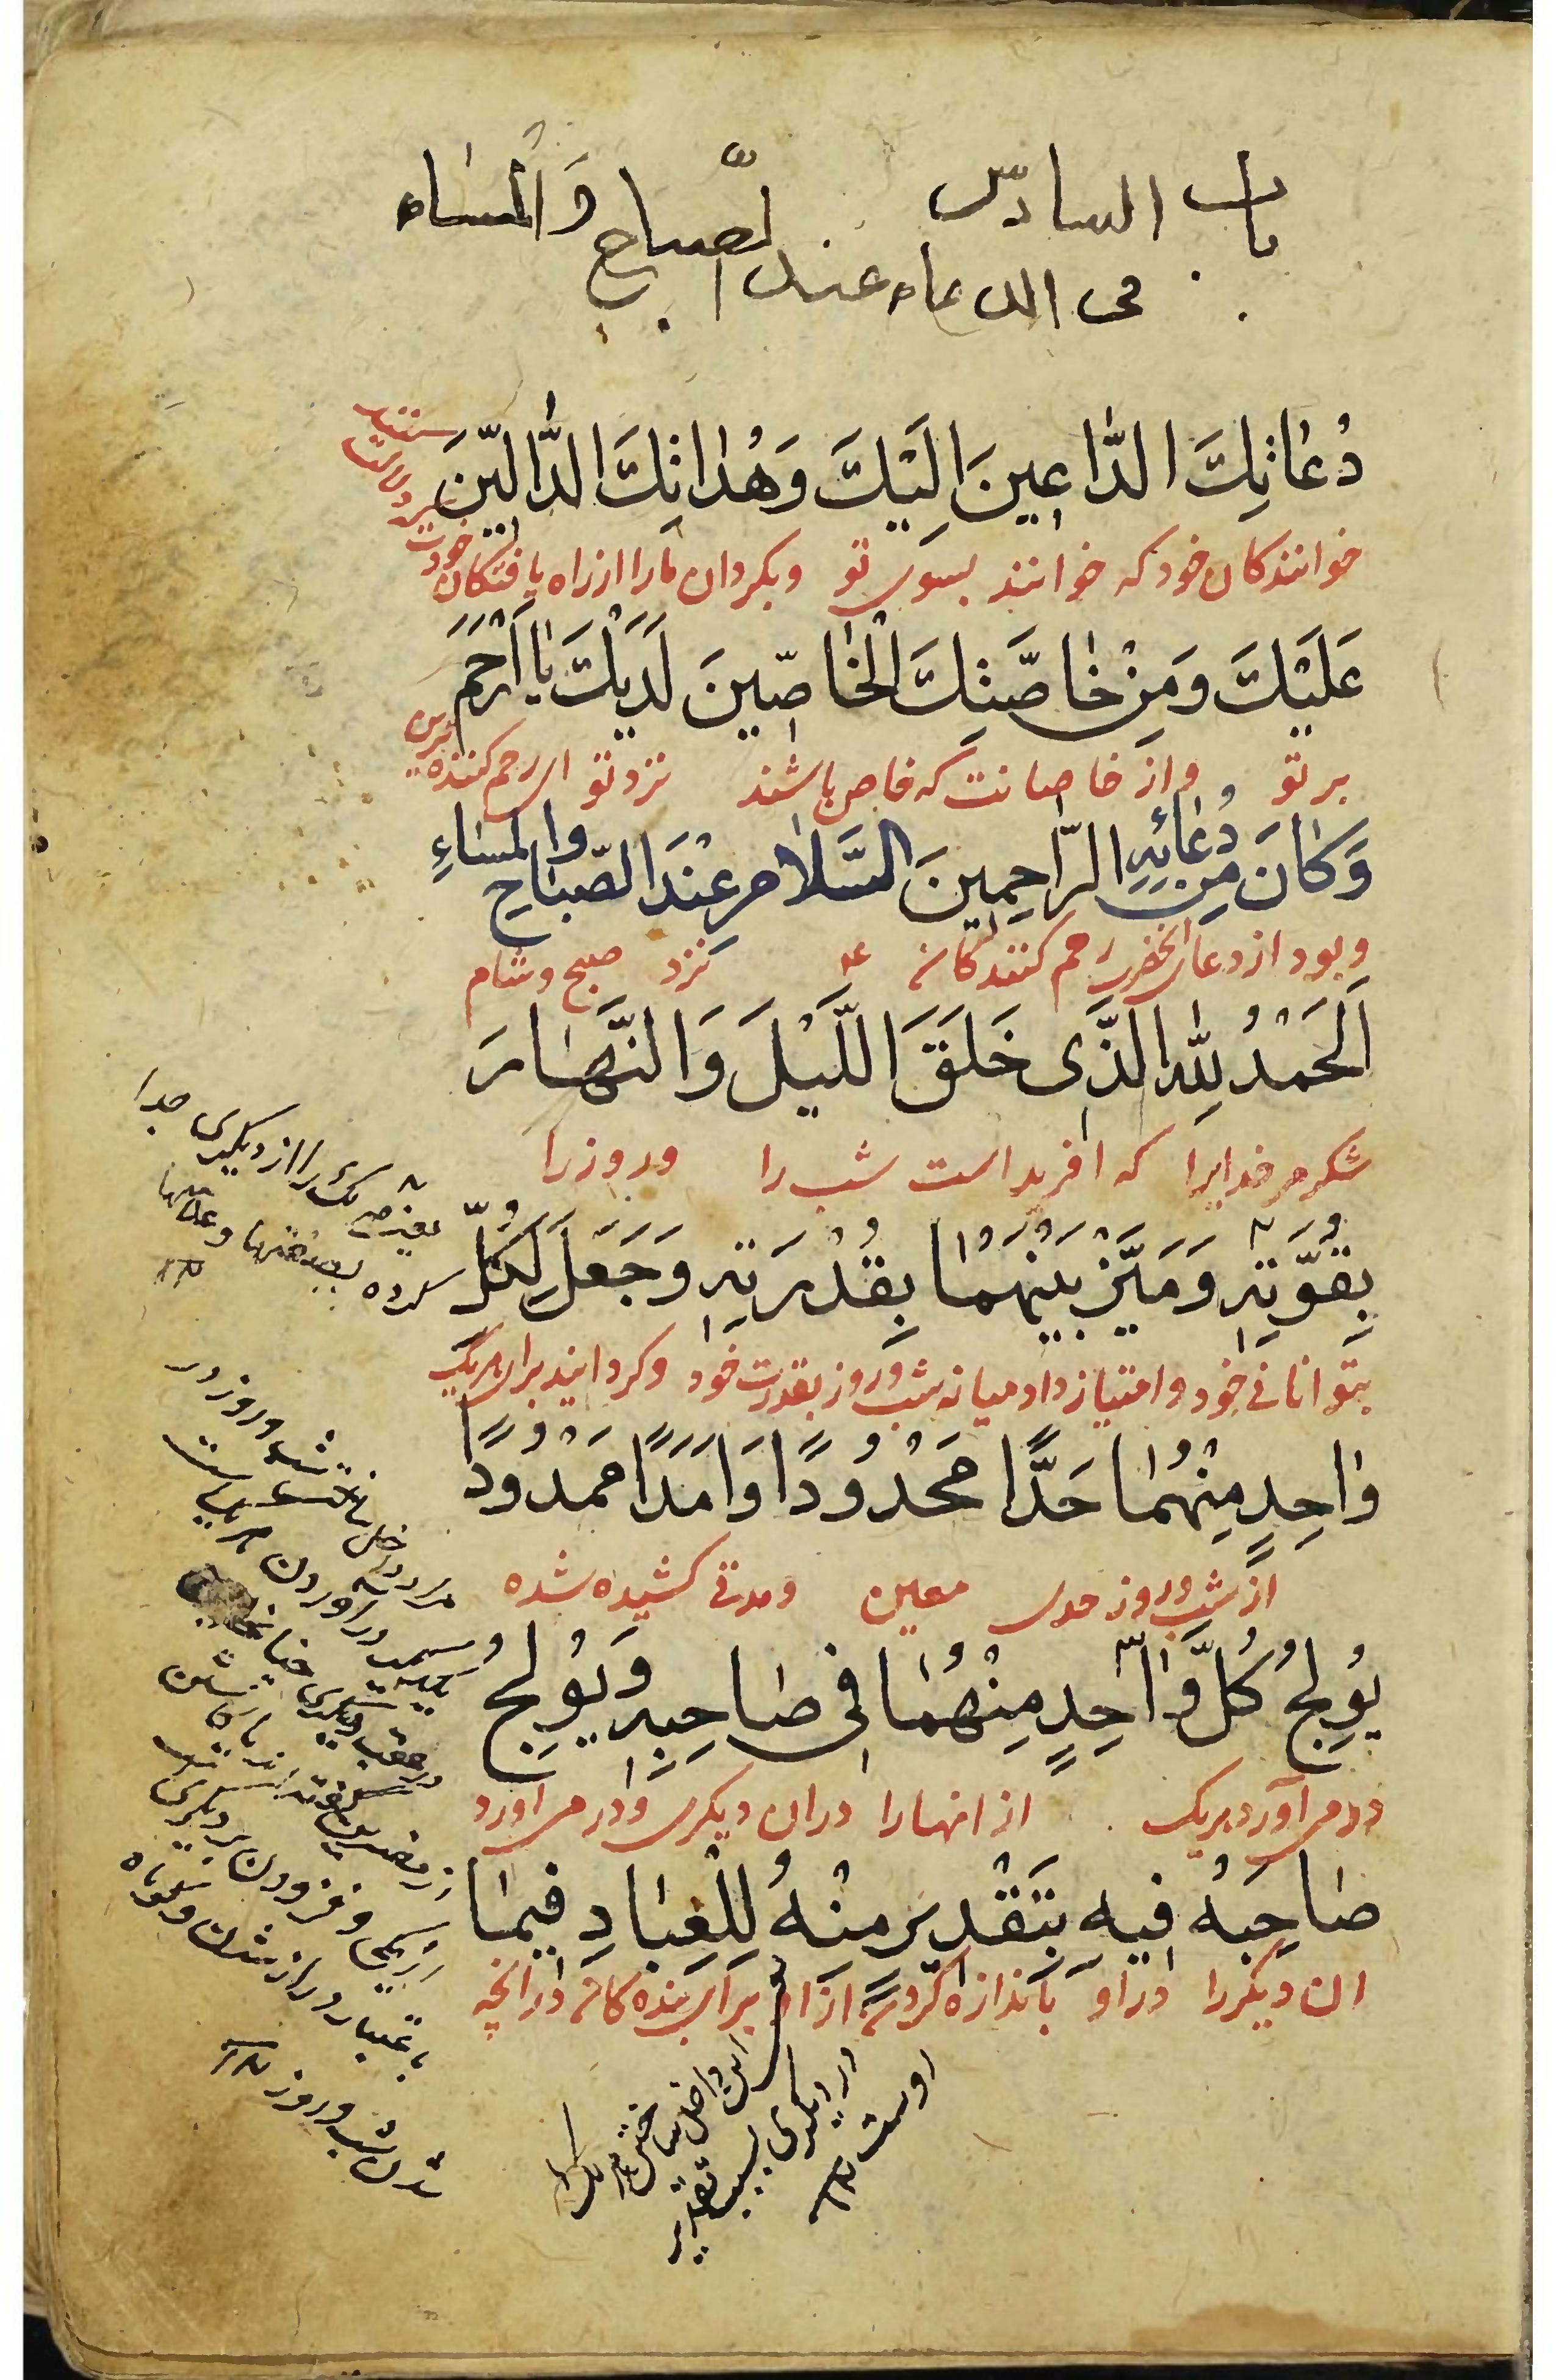 باب السادس
فى الدعاء عند الصباح والمساء
دُعٰاتِكَ الدّٰاعِينَ اِلَيْكَ وَهُدٰاتِكَ الدّٰالّينَ
خوانندكان خود كه خوانند بسوى تو وبكردان مارا از راه يافتكان خودت
عَلَيْكَ وَمِنْ خٰاصَّتِكَ الْخٰاصّينَ لَدَيْكَ يٰا اَرْحَمَ
بر تو واز خاصانت كه خاص باشند نزد تو اى رحم كننده ترين
وَكٰانَ مِنْ دُعٰائِهِ الرّٰاحِمِينَ السَّلٰامُ عِنْدَ الصَّبٰاحِ وَالْمَسٰاءِ
وبود از دعاى انحضرت رحم كنندكان ع نزد صبح وشام
اَلْحَمْدُ لِلّٰهِ الَّذى خَلَقَ اللَّيْلَ وَالنَّهٰارَ
شكر مر خدايرا كه افريد است شب را وروز را
بِقُوَّتِهِ وَمَيَّزَ بَيْنَهُمٰا بِقُدْرَتِهِ وَجَعَلَ لِكُلِّ
بتوانائى خود وامتياز داد ميانه شب وروز بقدرت خود وكردانيد براى هريك
وٰاحِدٍ مِنْهُمٰا حَدًّا مَحْدُودًا وَاَمَدًا مَمْدُودًا
از شب وروز حدى معين ومدتى كشيده شده
يُولِجُ كُلَّ وٰاحِدٍ مِنْهُمٰا فى صٰاحِبِهِ وَيُولِجُ
در مى آورد هريك از انها را دران ديكرى ودر مى اورد
صٰاحِبَهُ فيهِ بِتَقْديرٍ مِنْهُ لِلْعِبٰادِ فيمٰا
ان ديكر را در او باندازه كردنى از او براى بنده كان در انچه
يعنى هر يك را از ديكرى جدا
كرده بصفتها وعلامتها
باعتبار دراز شدن وكوتاه
شدن شب وروز
داخل ساختن هر يك
در ديكرى بسبب تقدير
اوست